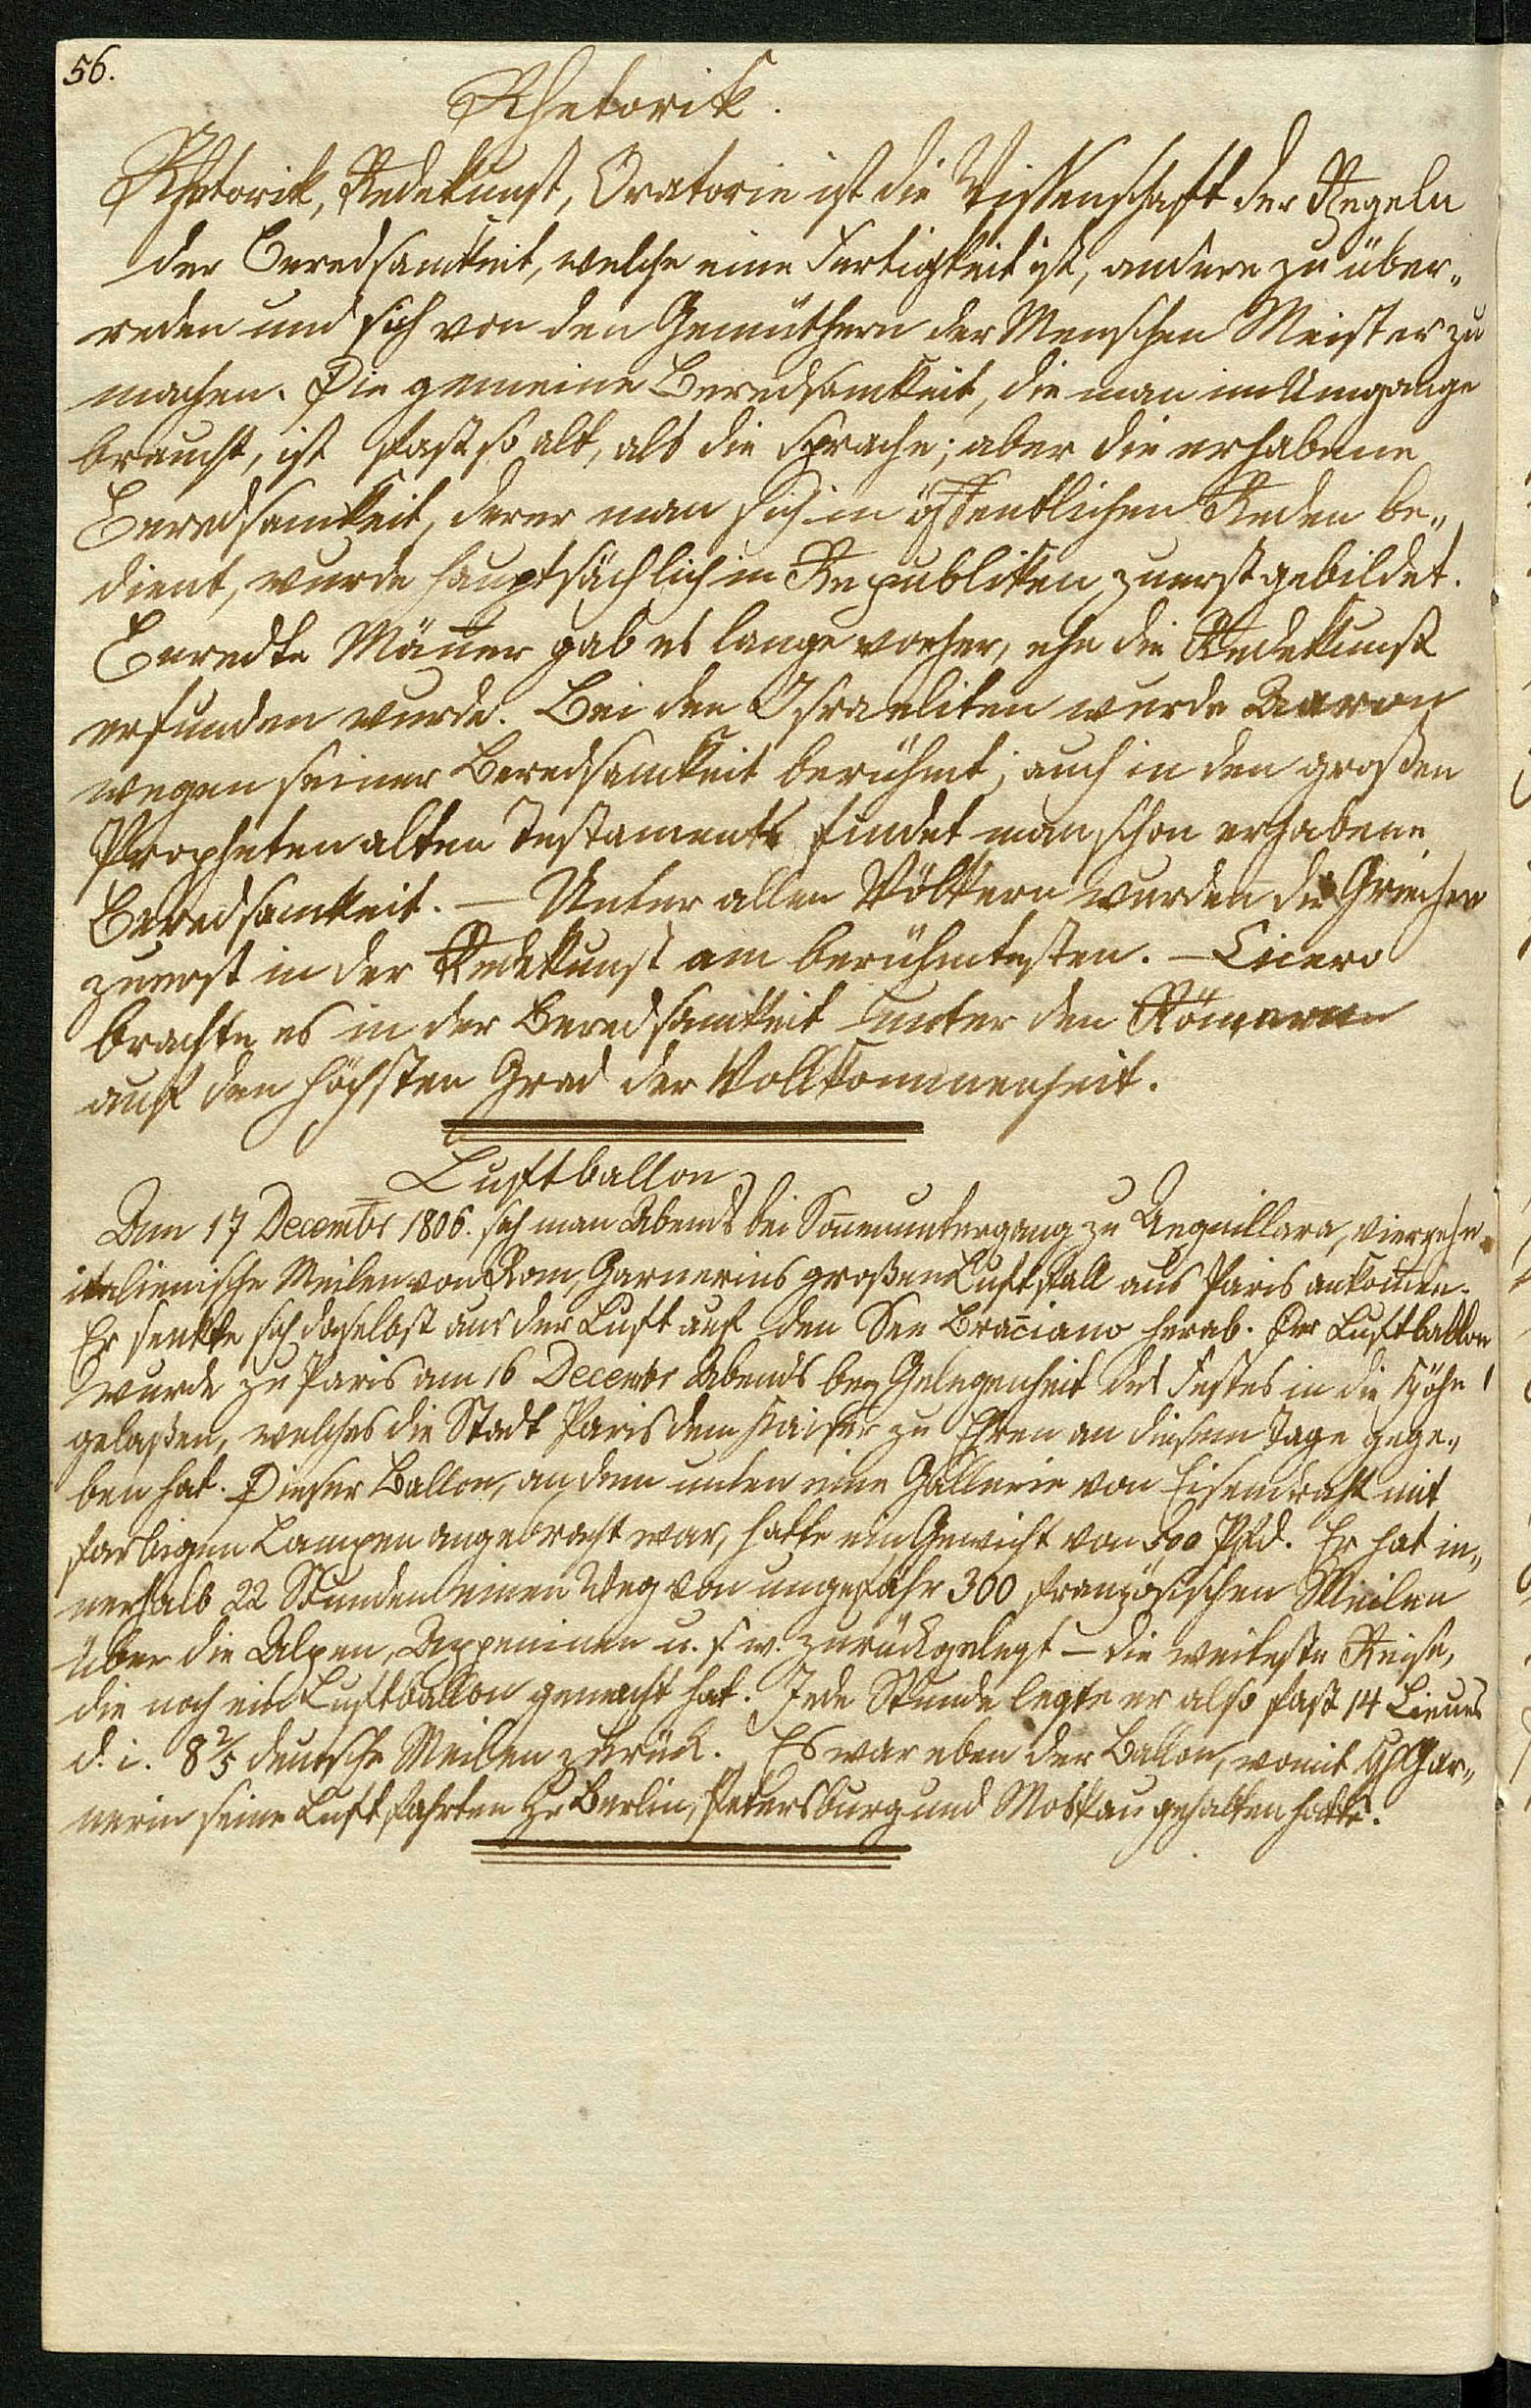 56.
Rhetorik.
Rhetorik, Redekunst, Oratorie ist die Wissenschaft der Regeln
der Beredsamkeit, welche eine Fertigkeit ist, andere zu über„
reden und sich von den Gemüthern der Menschen Meister zu
machen. Die gemeine Beredsamkeit, die man im Umgange
braucht, ist fast so alt, als die Sprache; aber die erhabene
Beredsamkeit, derer man sich in öffentlichen Reden be„
dient, wurde hauptsächlich in Republiken zuerst gebildet.
Beredte Mäñer gab es lange vorher, ehe die Redekunst
erfunden wurde. Bei den Israeliten wurde Aaron
wegen seiner Beredsamkeit berühmt; auch in den großen
Propheten alten Testaments findet man schon erhabene
Beredsamkeit. — Unter allen Völkern wurden die Griechen
zuerst in der Redekunst am berühmtesten. — Cicero
brachte es in der Beredsamkeit unter den Römern
auf den höchsten Grad der Vollkommenheit.
Luftballon
Am 17 Decembr 1806. sah man Abends bei Soñenuntergang zu Anquillara, vierzehn
italienische Meilen von Rom, Garnerins großen Luftball aus Paris ankom̃en.
Er senkte sich daselbst aus der Luft auf den See Braciano herab. Der Luftballon
wurde zu Paris am 16 Decembr Abends bey Gelegenheit des Festes in die Höhe
gelaßen, welches die Stadt Paris dem Kaiser zu Ehren an diesem Tage gege„
ben hat. Dieser Ballon, an dem unten eine Gallerie von Eisendraht mit
farbigen Lampen angebracht war, hatte ein Gewicht von 500 Pfd. Er hat in„
nerhalb 22 Stunden einen Weg von ungefähr 300 französischen Meilen
über die Alpen, Appeninen u. s. w. zurückgelegt — die weiteste Reise,
die noch ein Luftballon gemacht hat. Jede Stunde legte er also fast 14 Lieues
d. i. 8 2/5 deutsche Meilen zurück. Es war eben der Ballon, womit H. Gar„
nerin seine Luftfahrten zu Berlin, Petersburg und Moskau gehalten hatte.